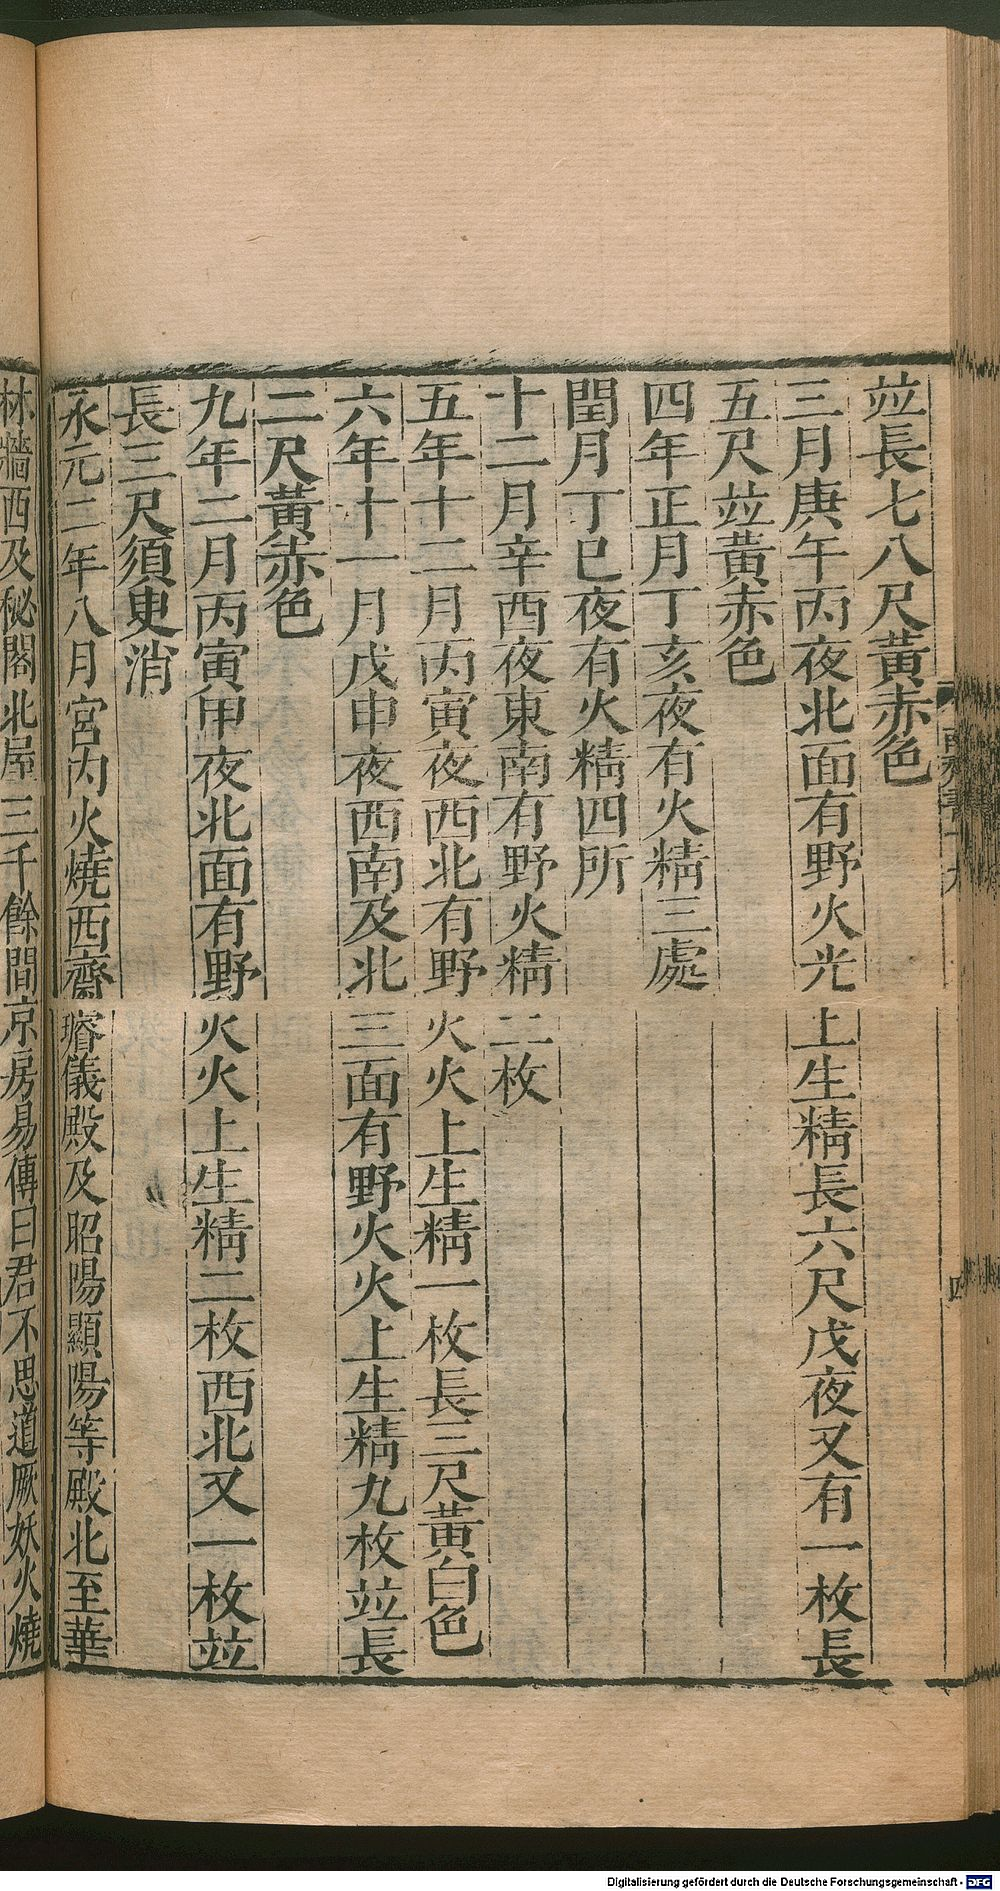 並長七八尺黃赤色
三月庚午丙夜北面有野火光上生精長六尺戊夜又有一枚長
五尺並黃赤色
四年正月丁亥夜有火精三處
閏月丁巳夜有火精四所
十二月辛酉夜東南有野火精二枚
五年十二月丙寅夜西北有野火火上生精一枚長三尺黃白色
六年十一月戊申夜西南及北三面有野火火上生精九枚並長
二尺黃赤色
九年二月丙寅甲夜北面有野火火上生精二枚西北又一枚並
長三尺須臾消
永元二年八月宮內火燒西齋璿儀殿及昭陽顯陽等殿北至華
林墻西及秘閣北屋三千餘間京房易傳曰君不思道厥妖火燒
Digitalisierung gefördert durch die Deutsche Forschungsgemeinschaft - DFG